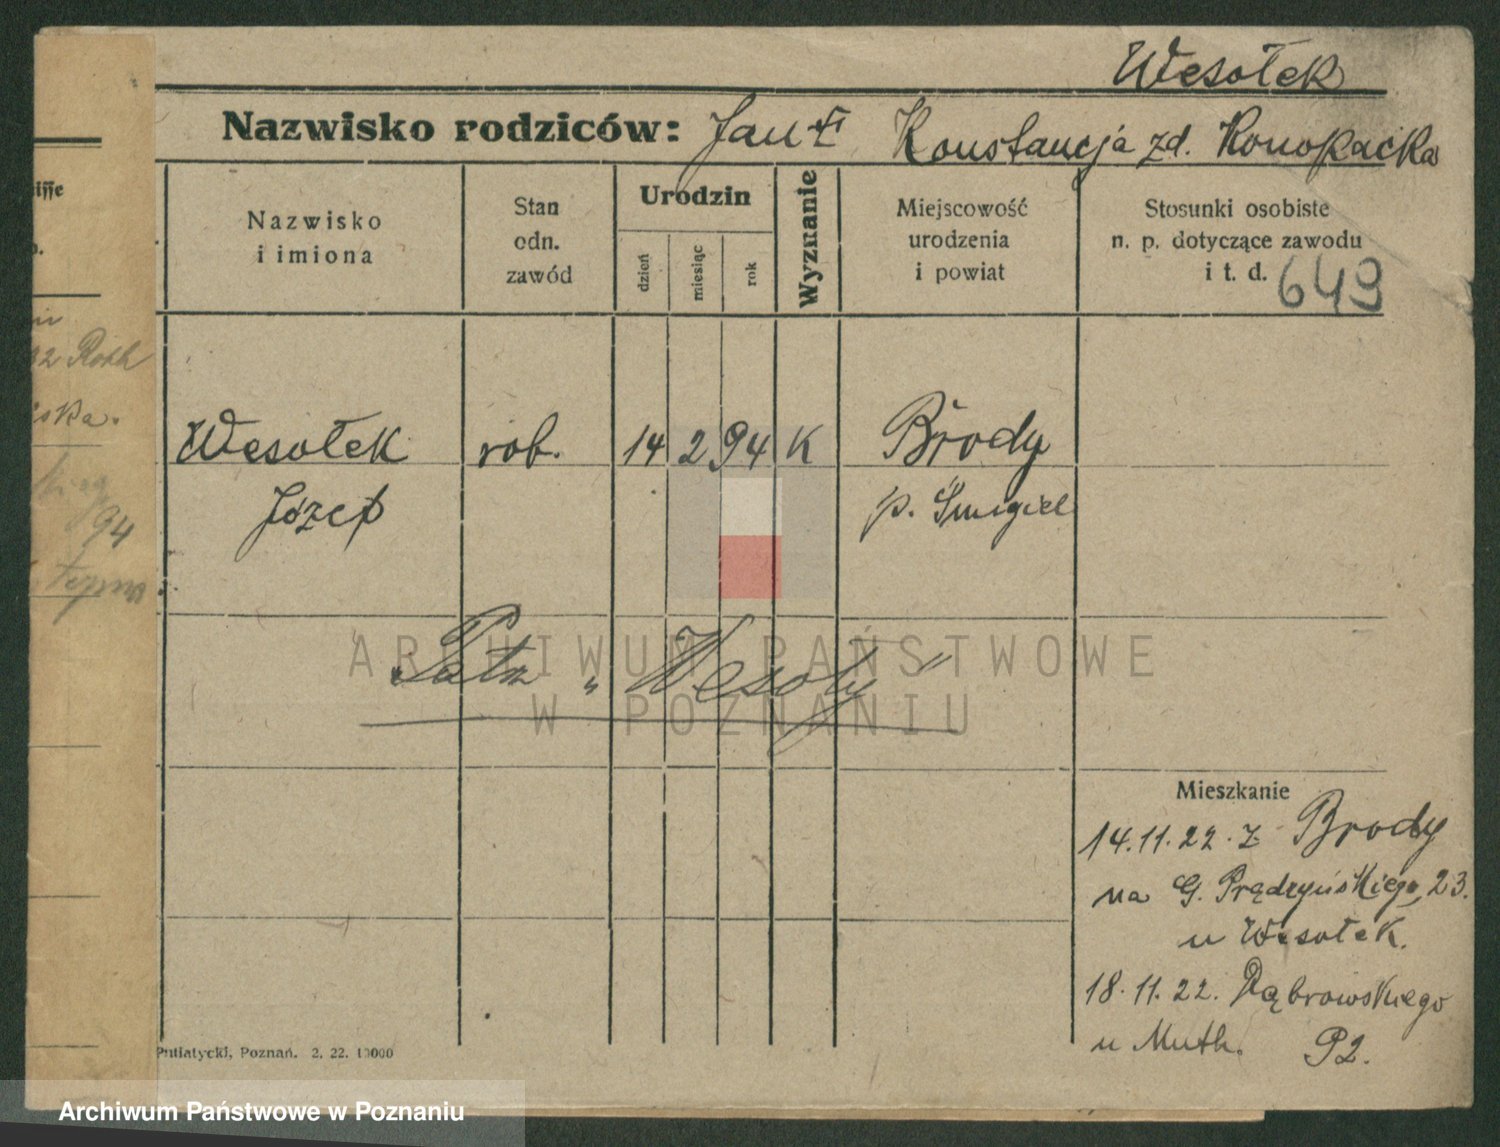 Wesołek
Nazwisko rodziców: Jan Konstancja zd. Konopacka
Nazwisko
i imiona
Stan
odn.
zawód
Urodzin
dzień
miesiąc
rok
Wyznanie
Miejscowość
urodzenia
i powiat
Stosunki osobiste
n. p. dotyczące zawodu
i t. d.
649
Wesołek rob. 14 2 94 K Brody
Józef p. Śmigiel
Patrz „Wesoły"
ARCHIWUM PAŃSTWOWE
W POZNANIU
Mieszkanie
14.11.22. z Brody
na G. Prądzyńskiego, 23.
u Wesołek.
18.11.22. Dąbrowskiego
u Muth. 92.
Putiatycki, Poznań. 2. 22. 10000
iska.
94
Archiwum Państwowe w Poznaniu